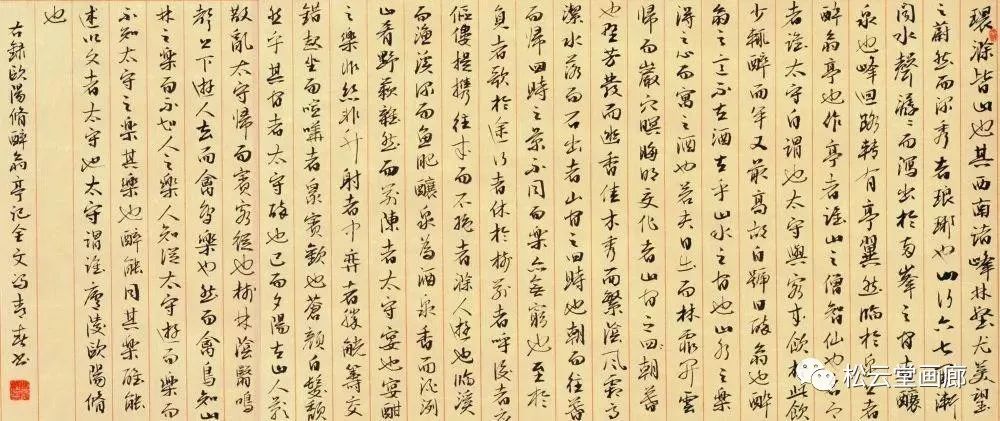 環滁皆山也其西南諸峰林壑尤美望
之蔚然而深秀者琅琊也山行六七里漸
聞水聲潺潺而瀉出於兩峯之間者釀
泉也峰回路轉有亭翼然臨於泉上者
醉翁亭也作亭者誰山之僧智仙也名之
者誰太守自謂也太守與客來飲於此飲
少輒醉而年又最高故自號曰醉翁也醉
翁之意不在酒在乎山水之間也山水之樂
得之心而寓之酒也若夫日出而林霏開雲
歸而巖穴暝晦明變化者山間之四朝暮
也野芳發而幽香佳木秀而繁陰風霜高
潔水落而石出者山間之四時也朝而往暮
而歸四時之景不同而樂亦無窮也至於
負者歌於途行者休於樹前者呼後者應
傴僂提攜往來而不絕者滁人遊也臨溪
而漁溪深而魚肥釀泉為酒泉香而酒洌
山肴野蔌雜然而前陳者太守宴也宴酣
之樂非絲非竹射者中弈者勝觥籌交
錯起坐而喧嘩者眾賓歡也蒼顏白髮頹
然乎其間者太守醉也已而夕陽在山人影
散亂太守歸而賓客從也樹林陰翳鳴
聲上下遊人去而禽鳥樂也然而禽鳥知山
林之樂而不知人之樂人知從太守遊而樂而
不知太守之樂其樂也醉能同其樂醒能
述以文者太守也太守謂誰廬陵歐陽脩
也
右錄歐陽脩醉翁亭記全文馮春書
松云堂画廊